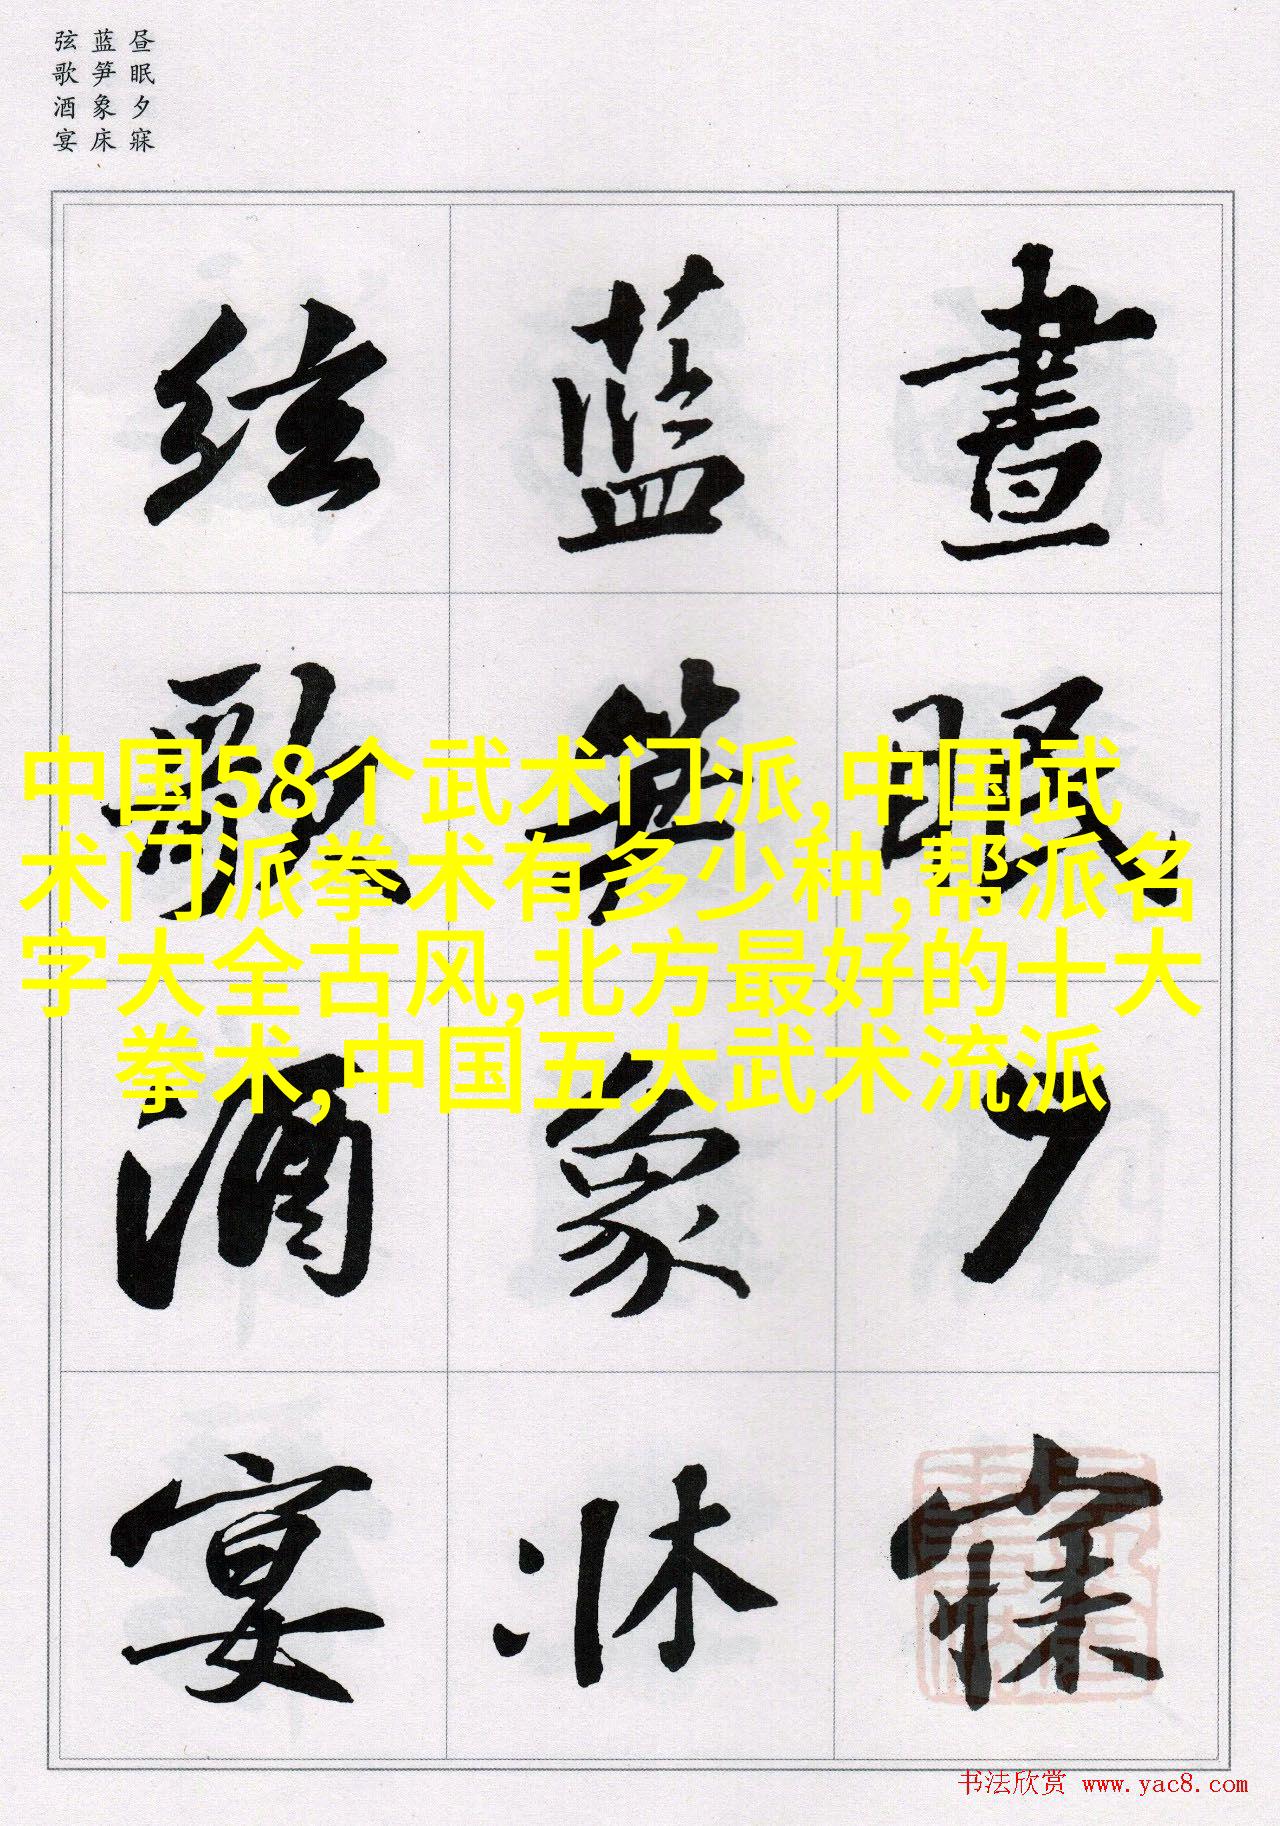 昼眠夕寐
蓝笋象床
弦歌酒宴
晝眠夕寐
藍笋象牀
絃歌酒宴
中国58个武术门派,中国武
术门派拳术有多少种,帮派名
字大全古风,北方最好的十大
拳术,中国五大武术流派
书法欣赏 www.yac8.com